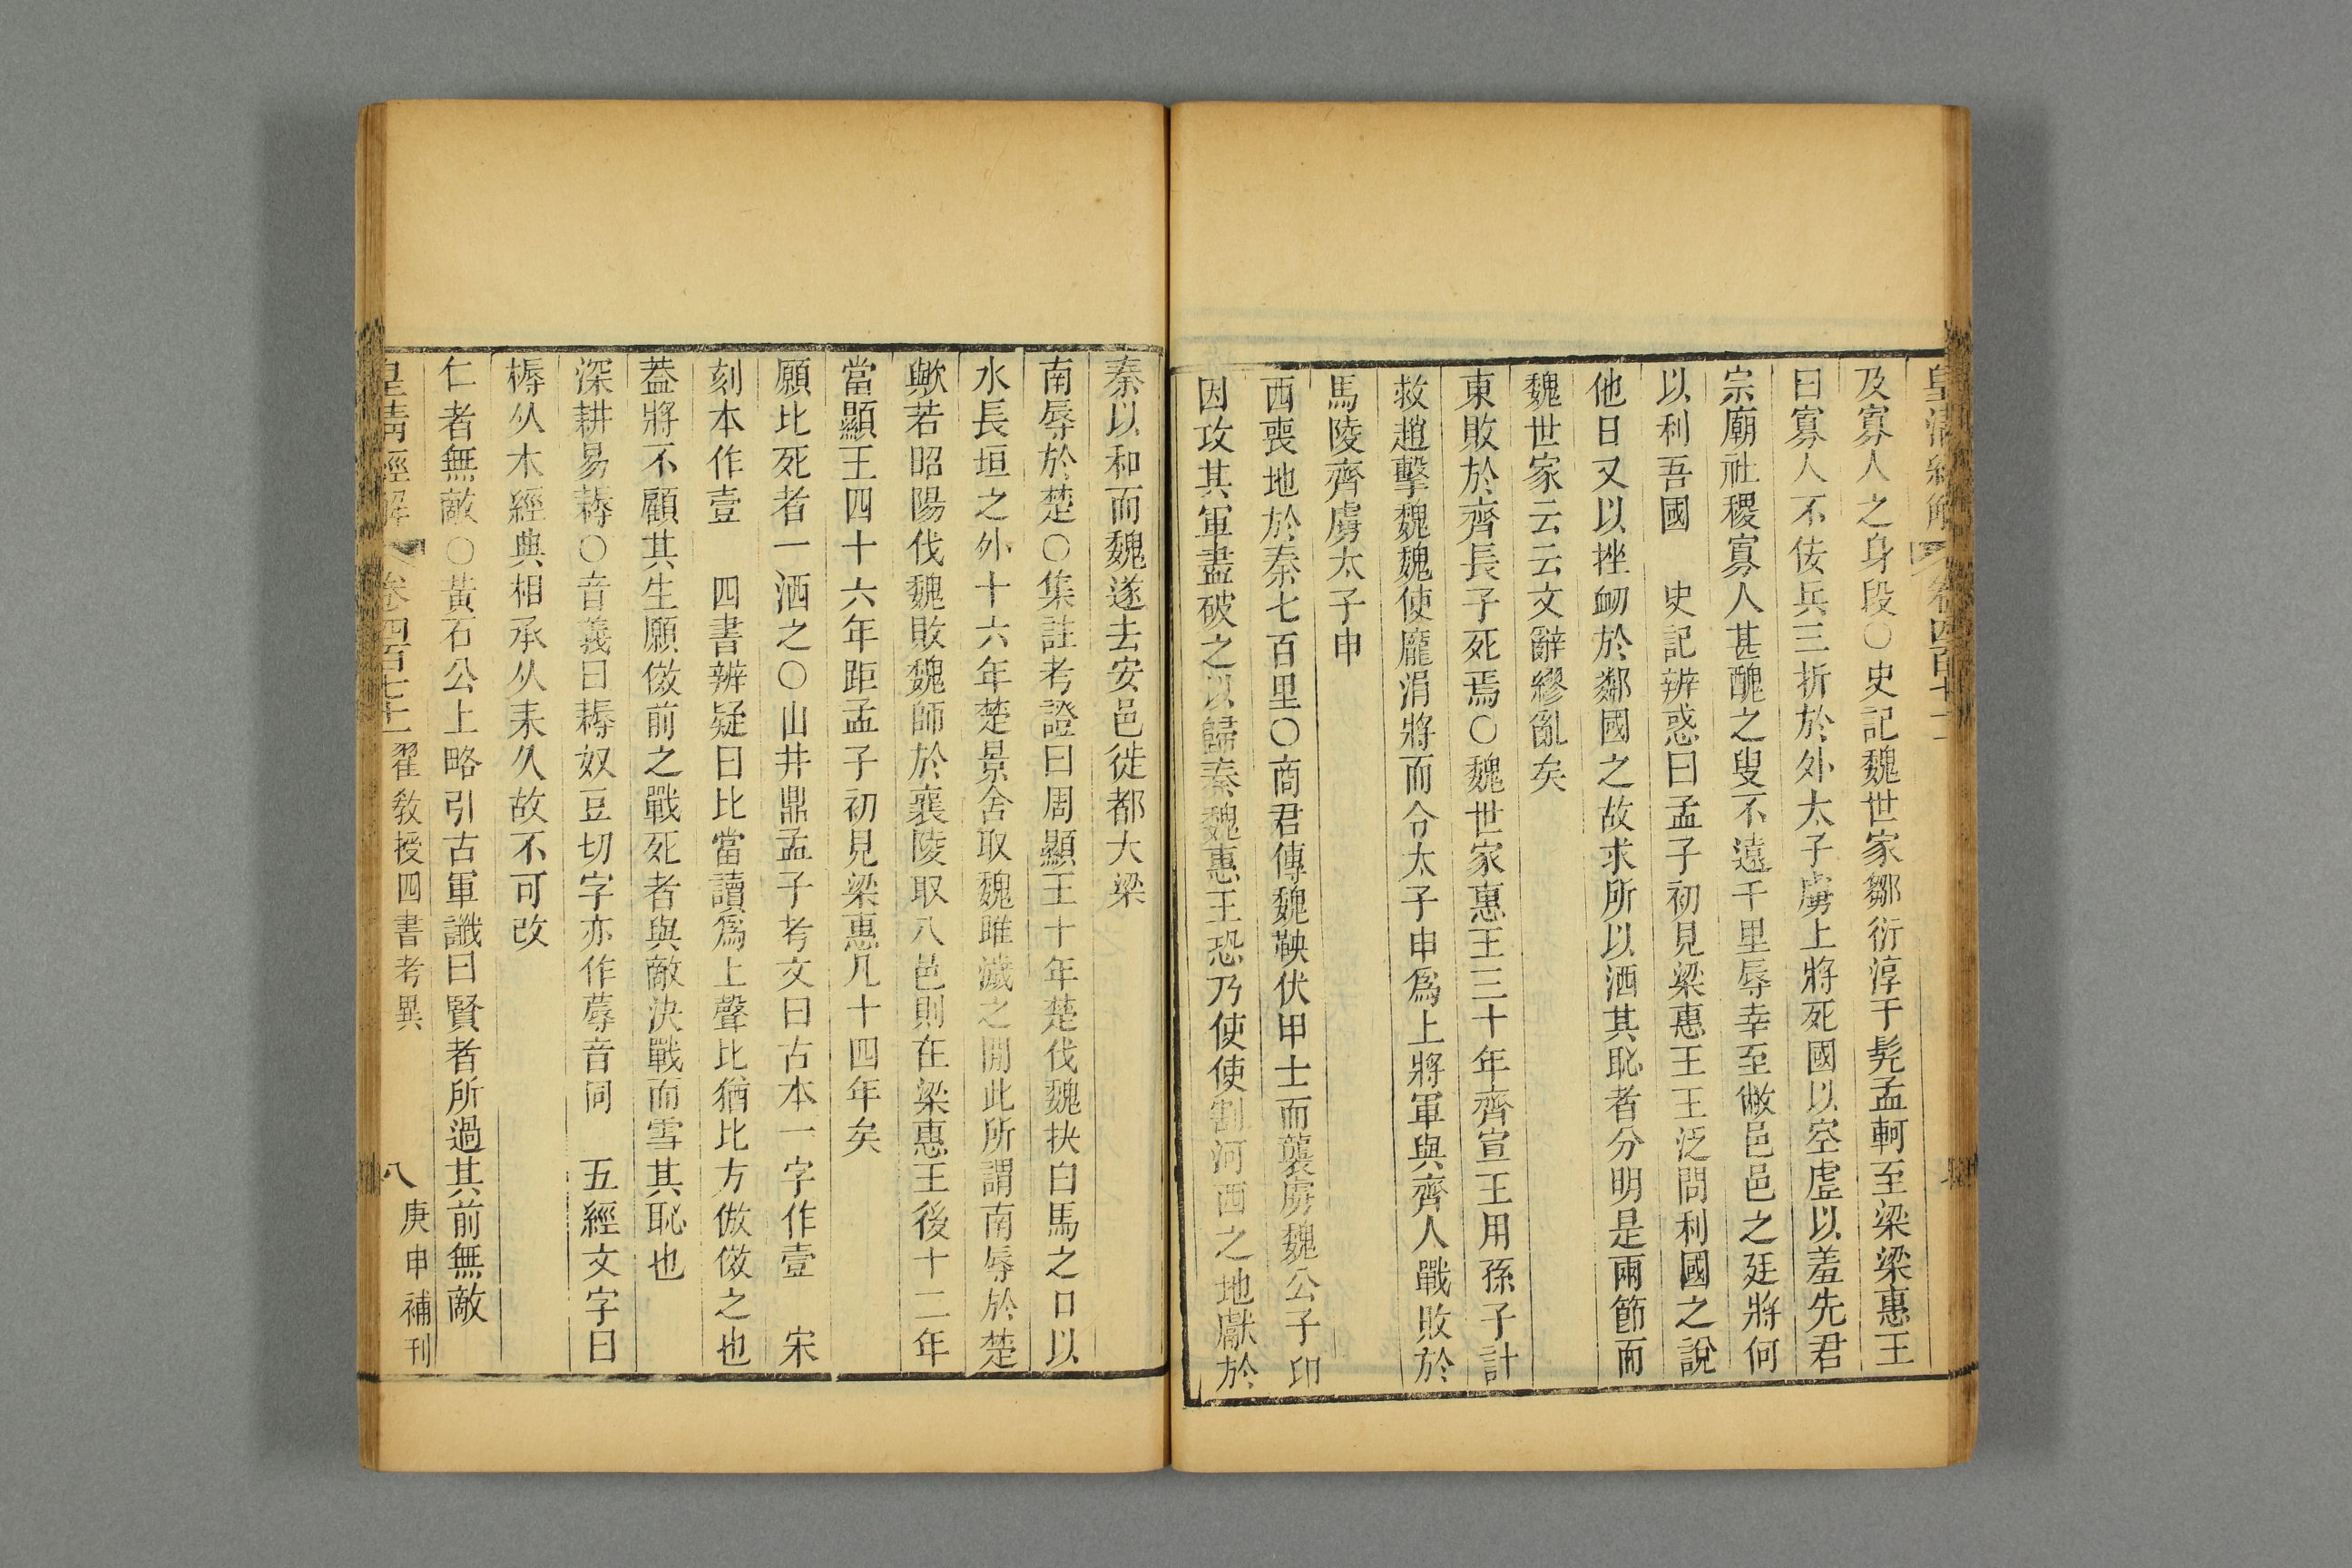 皇清經解 卷四百七十一
及寡人之身段○史記魏世家鄒衍淳于髡孟軻至梁梁惠王
曰寡人不佞兵三折於外太子虜上將死國以空虛以羞先君
宗廟社稷寡人甚醜之叟不遠千里辱幸至敝邑邑之廷將何
以利吾國 史記辨惑曰孟子初見梁惠王王泛問利國之說
他日又以挫衂於鄰國之故求所以洒其恥者分明是兩節而
魏世家云云文辭繆亂矣
東敗於齊長子死焉○魏世家惠王三十年齊宣王用孫子計
救趙擊魏魏使龐涓將而令太子申爲上將軍與齊人戰敗於
馬陵齊虜太子申
西喪地於秦七百里○商君傳魏鞅伏甲士而襲虜魏公子卬
因攻其軍盡破之以歸秦魏惠王恐乃使使割河西之地獻於
秦以和而魏遂去安邑徙都大梁
南辱於楚○集註考證曰周顯王十年楚伐魏抉白馬之口以
水長垣之外十六年楚景舍取魏雎濊之閒此所謂南辱於楚
歟若昭陽伐魏敗魏師於襄陵取八邑則在梁惠王後十二年
當顯王四十六年距孟子初見梁惠凡十四年矣
願比死者一洒之○山井鼎孟子考文曰古本一字作壹 宋
刻本作壹 四書辨疑曰比當讀爲上聲比猶比方倣傚之也
葢將不顧其生願傚前之戰死者與敵決戰而雪其恥也
深耕易耨○音義曰耨奴豆切字亦作薅音同 五經文字曰
槈从木經典相承从耒久故不可改
仁者無敵○黃石公上略引古軍讖曰賢者所過其前無敵
皇清經解 卷四百七十一 翟教授四書考異 八 庚申補刊